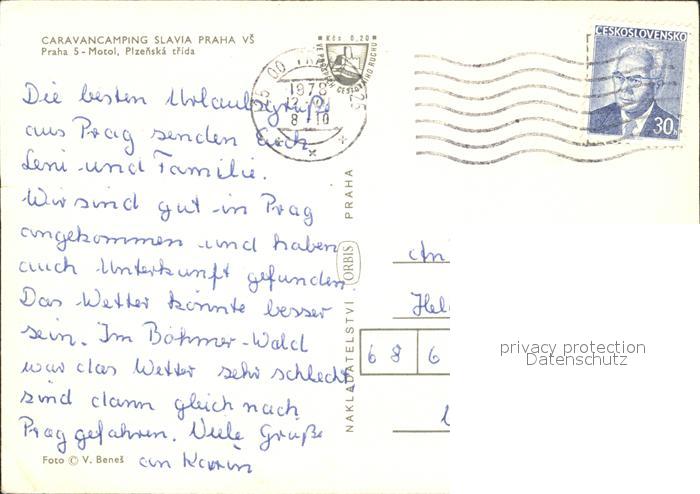 CARAVANCAMPING SLAVIA PRAHA VŠ
Praha 5 - Motol, Plzeňská třída
Die besten Urlaubsgrüße
aus Prag senden Euch
Leni und Familie.
Wir sind gut in Prag
angekommen und haben
auch Unterkunft gefunden.
Das Wetter könnte besser
sein. Im Böhmer-Wald
war das Wetter sehr schlecht
sind dann gleich nach
Prag gefahren. Viele Grüße
an Karin
Foto © V. Beneš
Kčs 0,20
CESTOVNÍHO RUCHU
ČESKOSLOVENSKO
30h
NAKLADATELSTVÍ ORBIS PRAHA
An
Hel
6 8 6
privacy protection
Datenschutz